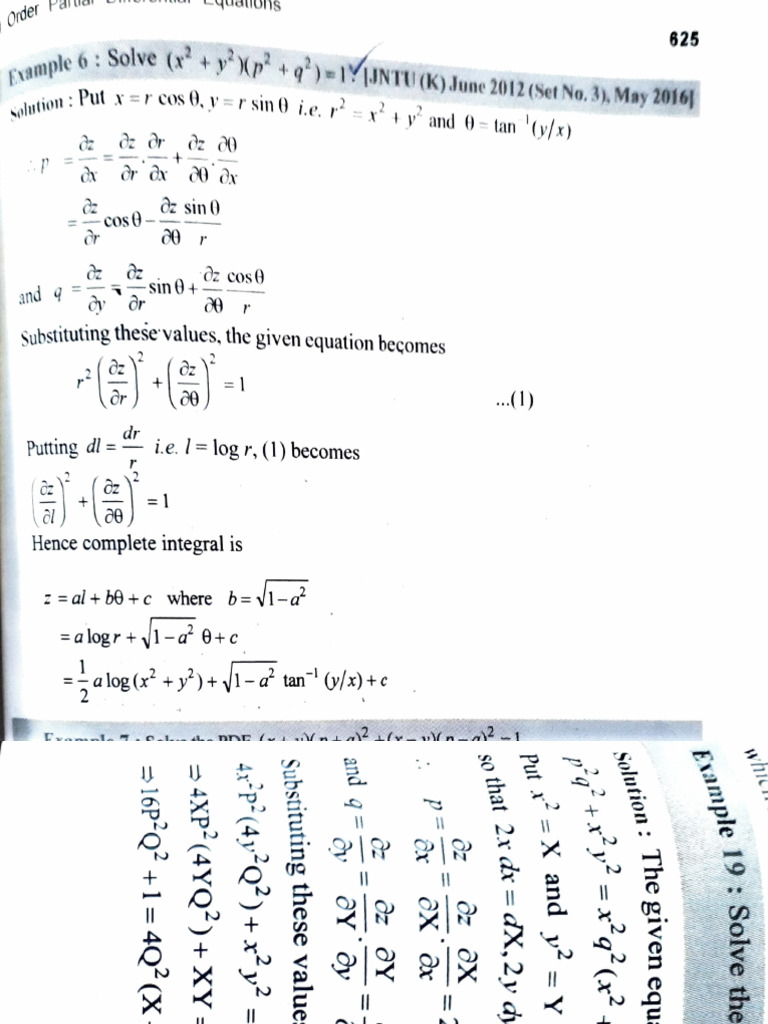 Order Partial Differential Equations
625
Example 6 : Solve (x² + y²)(p² + q²) = 1. [JNTU (K) June 2012 (Set No. 3), May 2016]
Solution : Put x = r cos θ, y = r sin θ i.e. r² = x² + y² and θ = tan⁻¹(y/x)
∴ p = ∂z/∂x = ∂z/∂r · ∂r/∂x + ∂z/∂θ · ∂θ/∂x
= ∂z/∂r cos θ − ∂z/∂θ sin θ/r
and q = ∂z/∂y = ∂z/∂r sin θ + ∂z/∂θ cos θ/r
Substituting these values, the given equation becomes
r² (∂z/∂r)² + (∂z/∂θ)² = 1 ...(1)
Putting dl = dr/r i.e. l = log r, (1) becomes
(∂z/∂l)² + (∂z/∂θ)² = 1
Hence complete integral is
z = al + bθ + c where b = √(1−a²)
= a log r + √(1−a²) θ + c
= 1/2 a log (x² + y²) + √(1−a²) tan⁻¹ (y/x) + c
Example 7 : Solve the PDE (x + y)(p + q)² + (x − y)(p − q)² = 1
which
Example 19 : Solve the
Solution : The given equ
p²q² + x²y² = x²q²(x² +
Put x² = X and y² = Y
so that 2x dx = dX, 2y dy
∴ p = ∂z/∂x = ∂z/∂X · ∂X/∂x = 2
and q = ∂z/∂y = ∂z/∂Y · ∂Y/∂y =
Substituting these values
4x²P²(4y²Q²) + x²y² =
⇒ 4XP²(4YQ²) + XY =
⇒ 16P²Q² + 1 = 4Q²(X